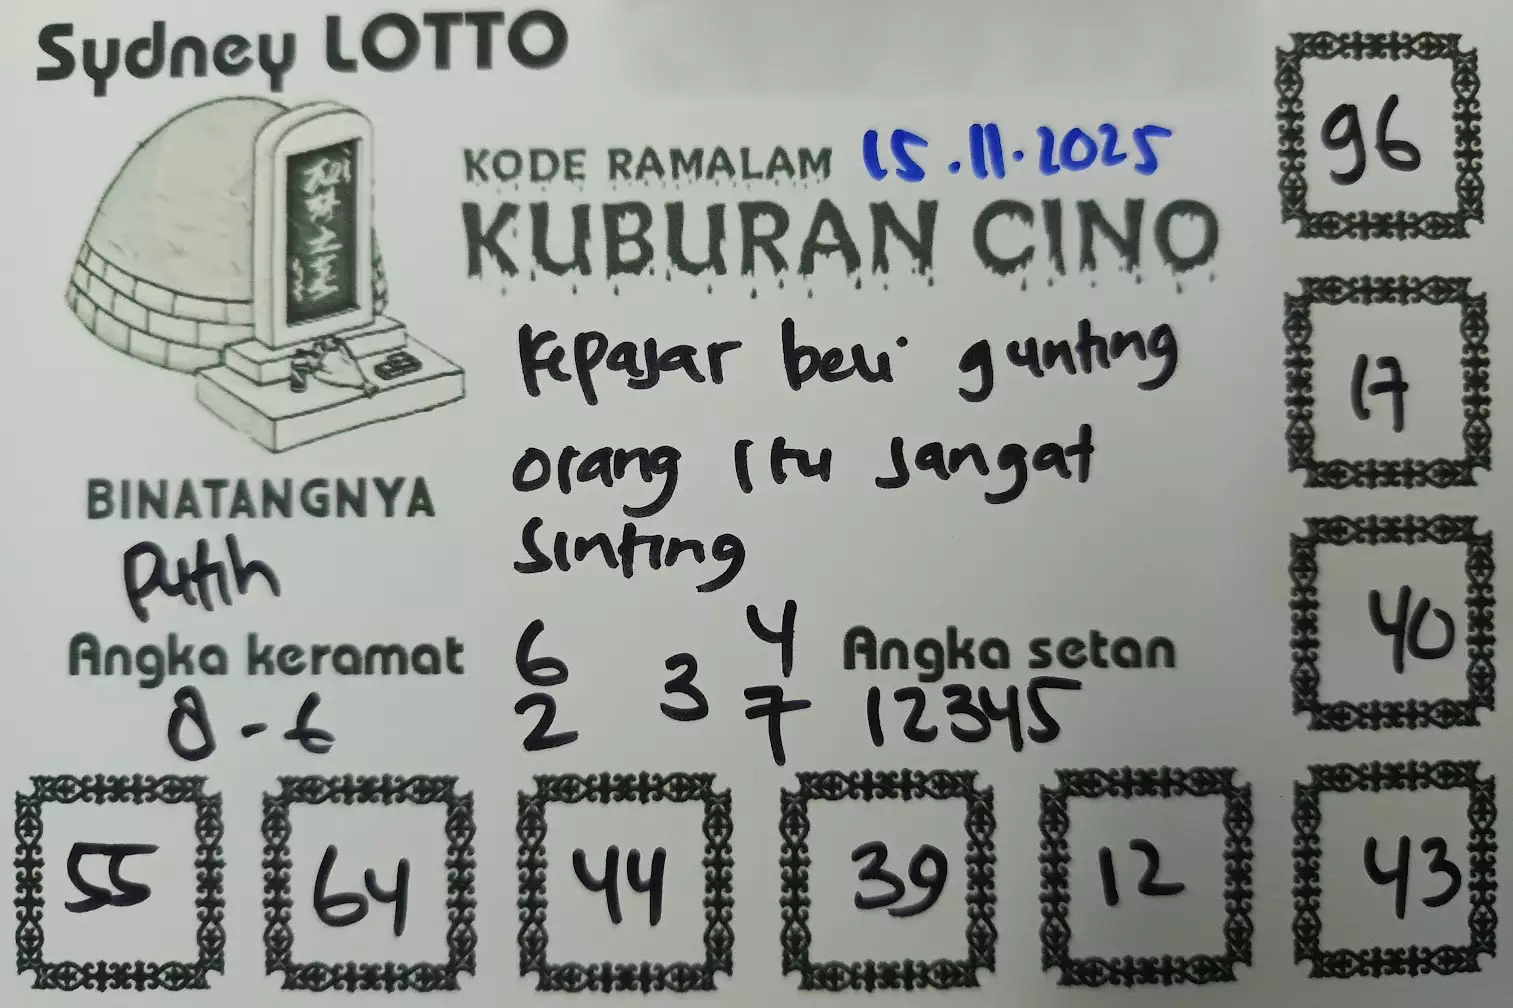 Sydney LOTTO
KODE RAMALAM 15.11.2025
KUBURAN CINO
Kepasar beli gunting
orang itu sangat
sinting
BINATANGNYA
Putih
Angka keramat
8-6
6 3 4
2 7
Angka setan
12345
96
17
40
55 64 44 39 12 43